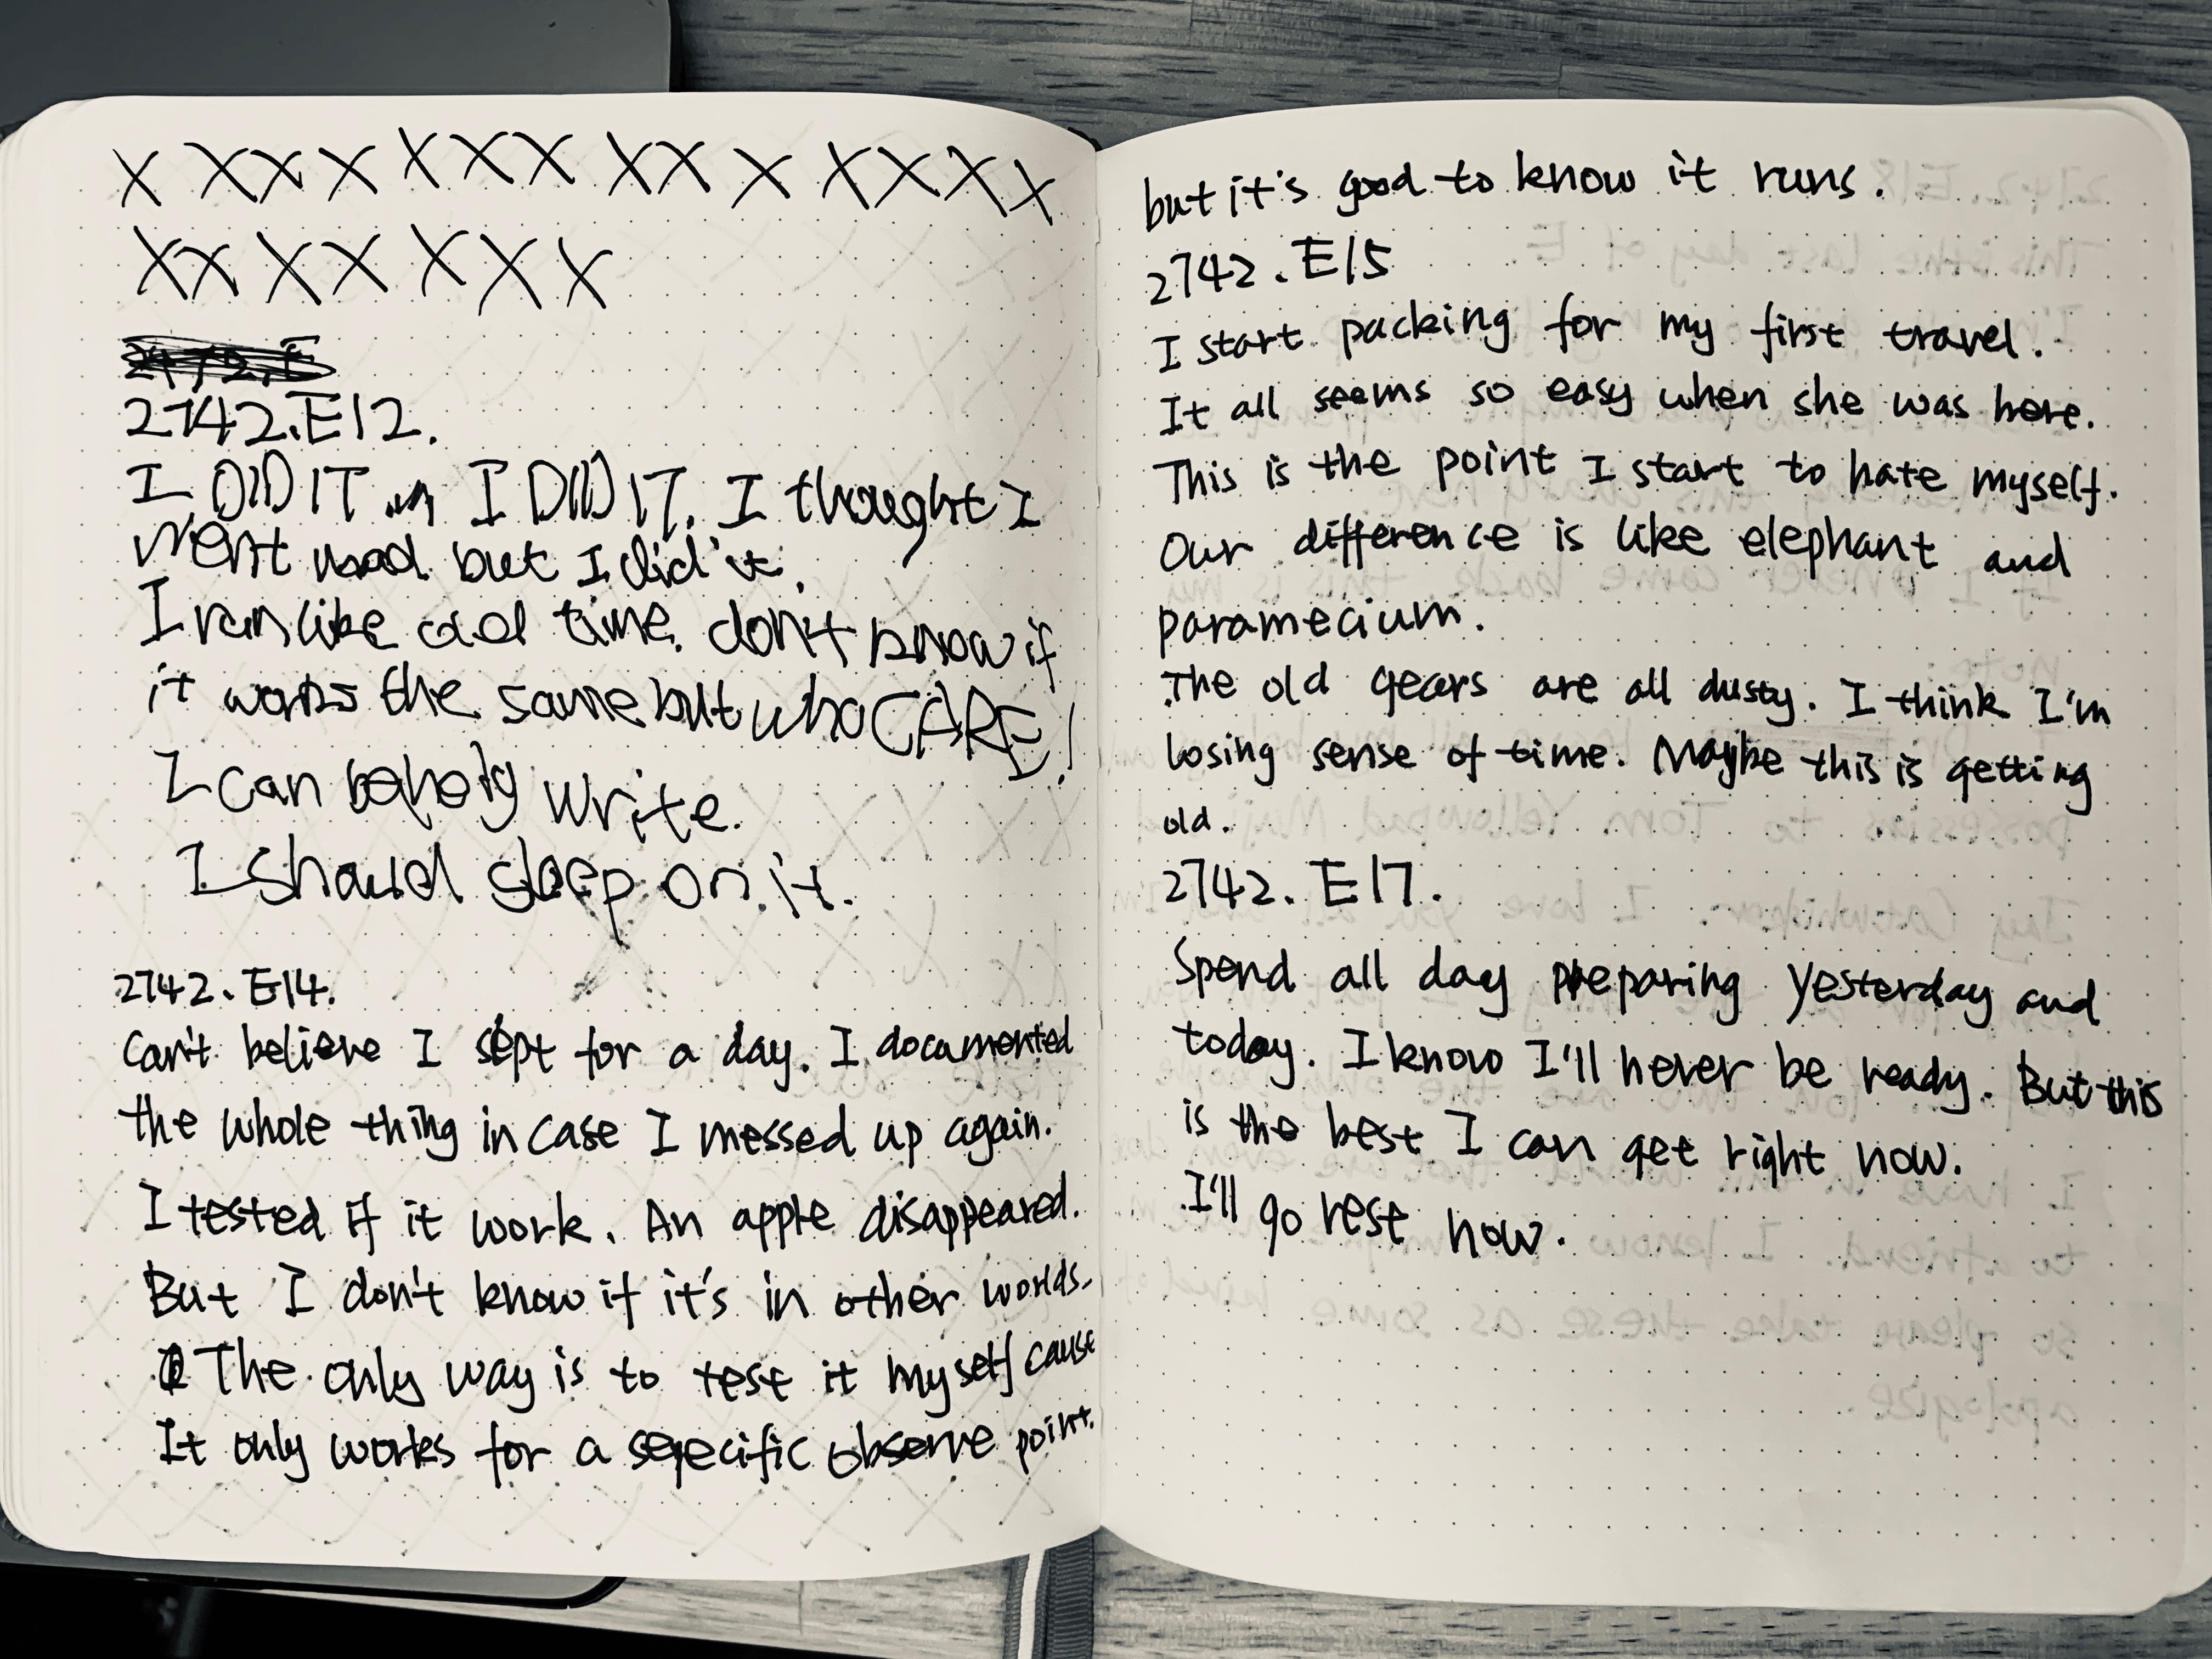 X XXX XXX XX X XXXX
XX XX XXX
2742.E12.
I DID IT I DID IT. I thought I
went mad but I did it.
I run like old time. don't know if
it works the same but who CARE!
I can write.
I should sleep on it.
2742. E14.
Can't believe I slept for a day. I documented
the whole thing in case I messed up again.
I tested if it work. An apple disappeared.
But I don't know if it's in other worlds.
The only way is to test it myself cause
It only works for a specific observe point.
but it's good to know it runs.
2742. E15
I start packing for my first travel.
It all seems so easy when she was here.
This is the point I start to hate myself.
Our difference is like elephant and
paramecium.
The old gears are all dusty. I think I'm
losing sense of time. Maybe this is getting
old.
2742. E17.
Spend all day preparing yesterday and
today. I know I'll never be ready. But this
is the best I can get right now.
I'll go rest now.